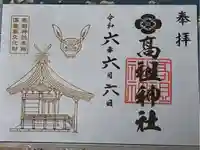 奉拝
高祖神社
令和六年六月六日